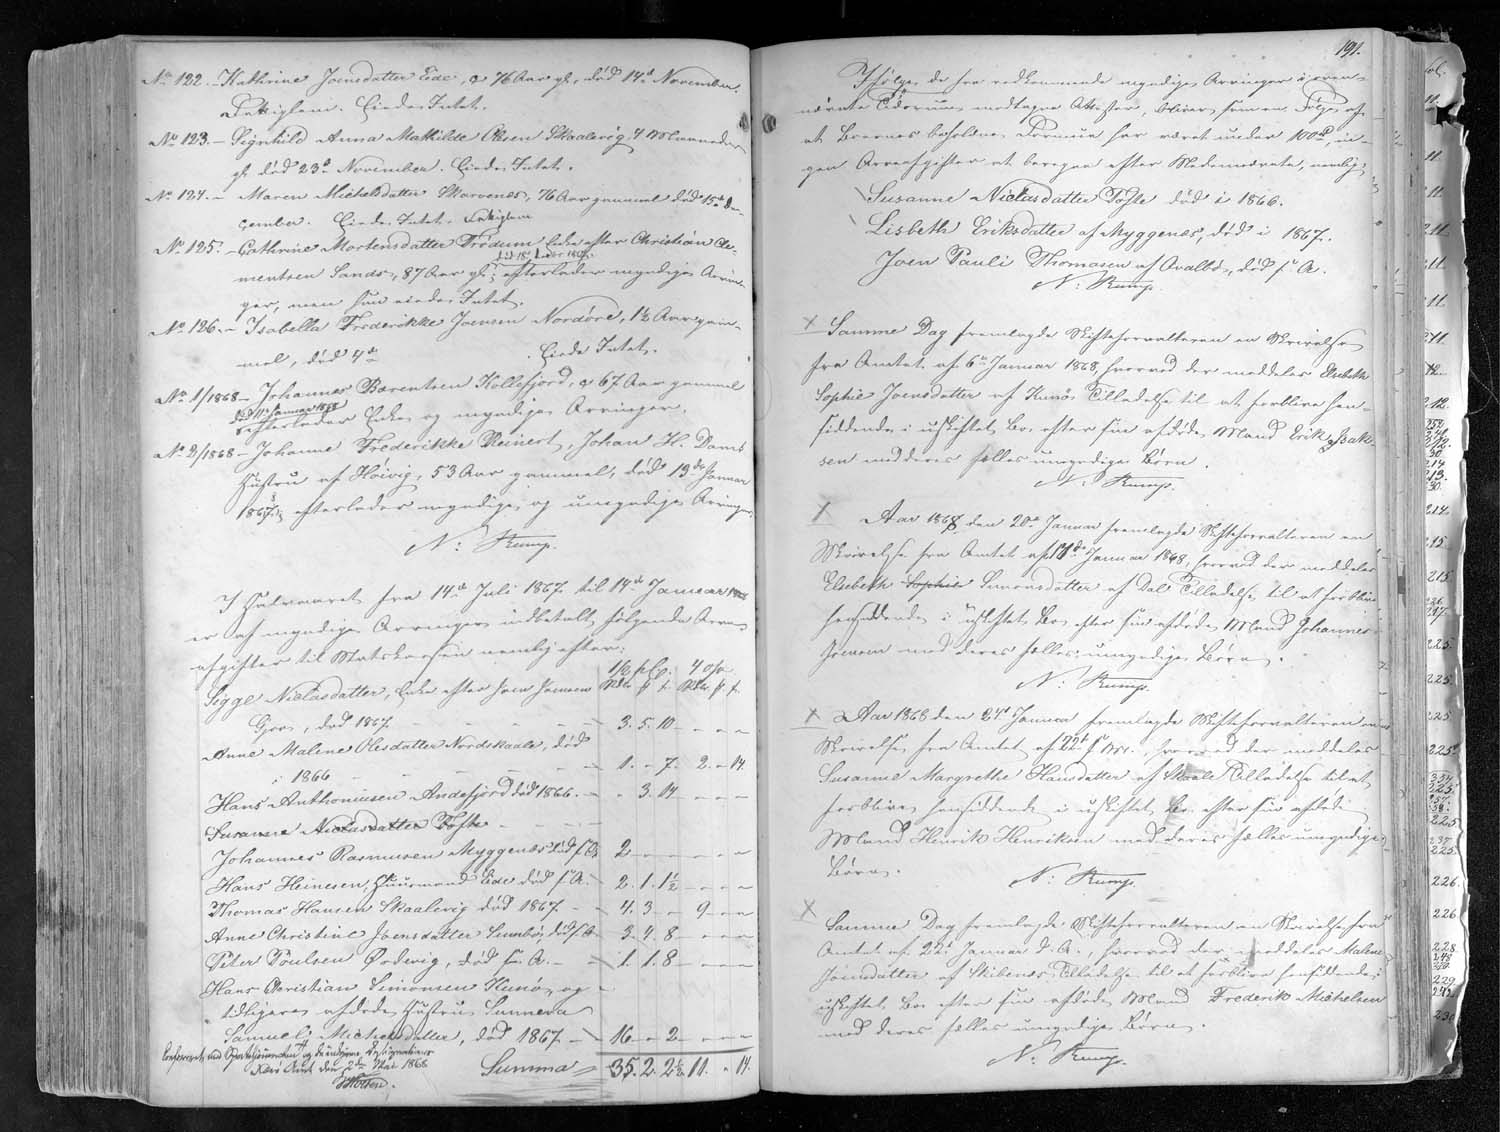 No 122. - Kathrine Joensdatter Eide, 76 Aar gl., død 14de November.
Fattiglem. Eiede Intet.
No 123. - Signhild Anna Mathilde Olsen Skaalevig 4 Maaneder
gl. død 23de November. Eiede Intet.
No 124. - Maren Michelsdatter Skarvenes, 76 Aar gammel død 15de De-
cember. Eiede Intet. Fattiglem
No 125. - Cathrine Mortensdatter Frodum Enke efter Christian Cle-
mentsen Sands, 87 Aar gl., efterlader myndige Arvin-
ger, men hun eiede Intet.
No 126. - Isabella Frederikke Joensen Nordøre, 1½ Aar gam-
mel, død 4de Eiede Intet.
No 1/1868 - Johannes Barentsen Kollefjord, 67 Aar gammel
død 11te Januar 1868
efterlader Enke og myndige Arvinger.
No 2/1868 - Johanne Frederikke Reinert, Johan H. Dams
Hustru af Hoivig, 53 Aar gammel, død 13de Januar
1868, efterlader myndige og umyndige Arvinger.
N: Rump.
I Halvaaret fra 14de Juli 1867 til 14de Januar 1868
er af myndige Arvinger indbetalt følgende Arve-
afgifter til Statskassen nemlig efter:
1/2 pCt. 4 o/o
Rdlr. ß. Rdlr. ß.
Sigge Niclasdatter, Enke efter Joen Joensen
Gjov, død 1867. - 3. 5. 10 - - -
Anne Malene Olesdatter Nordskaale, død
i 1866 - 1. - 7. 2. - 14.
Hans Anthoniusen Andefjord død 1866. - - 3. 14 - - -
Susanne Niclasdatter Tøfte
Johannes Rasmusen Myggenæs død f. A. 2 - - - - -
Hans Heinesen, Huusmand Eide død f. A. - 2. 1. 1½ - - -
Thomas Hansen Skaalevig død 1867. - 4. 3 - 9 - -
Anne Christine Joensdatter Sumbø, død f. A. 3. 4. 8 - - -
Peter Poulsen Ørdevig, død f. A. - 1. 1. 8 - - -
Hans Christian Simonsen Kunø, og
tidligere afdøde Hustru Sunneva
Samuel Michelsdatter, død 1867 - 16 - 2 - - -
Summa 35. 2. 2½ 11. - 14.
2den Mai 1868
191.
Ifølge de fra vedkommende myndige Arvinger i oven-
nævnte Tidsrum modtagne Attester, bliver som en Følge af
at Boernes beholdne Formue har været under 100rd, in-
gen Arveafgifter at beregne efter Nedennævnte, nemlig:
Susanne Niclasdatter Tøfte død i 1866.
Lisbeth Eriksdatter af Myggenæs, død i 1867.
Joen Pauli Thomasen af Qvalbø, død f. A.
N: Rump.
Samme Dag fremlagde Skifteforvalteren en Skrivelse
fra Amtet af 6te Januar 1868, hvorved der meddeles Elsebeth
Sophie Joensdatter af Kunø Tilladelse til at forblive hen-
siddende i uskiftet Bo efter sin afdøde Mand Erik Isak-
sen med deres fælles umyndige Børn.
N: Rump.
Aar 1868 den 20de Januar fremlagde Skifteforvalteren en
Skrivelse fra Amtet af 11de Januar 1868, hvorved der meddeles
Elsebeth Sophie Simonsdatter af Dal Tilladelse til at forblive
hensiddende i uskiftet Bo efter sin afdøde Mand Johannes
Joensen med deres fælles umyndige Børn.
N: Rump.
Aar 1868 den 24de Januar fremlagde Skifteforvalteren en
Skrivelse fra Amtet af 22de s. M., hvorved der meddeles
Susanne Margrethe Hansdatter af Skaale Tilladelse til at
forblive hensiddende i uskiftet Bo efter sin afdøde
Mand Henrik Henriksen med deres fælles umyndige
Børn.
N: Rump.
Samme Dag fremlagde Skifteforvalteren en Skrivelse fra
Amtet af 22de Januar d. A., hvorved der meddeles Malene
Joensdatter af Skibenæs Tilladelse til at forblive hensiddende i
uskiftet Bo efter sin afdøde Mand Frederik Michelsen
med deres fælles umyndige Børn.
N: Rump.